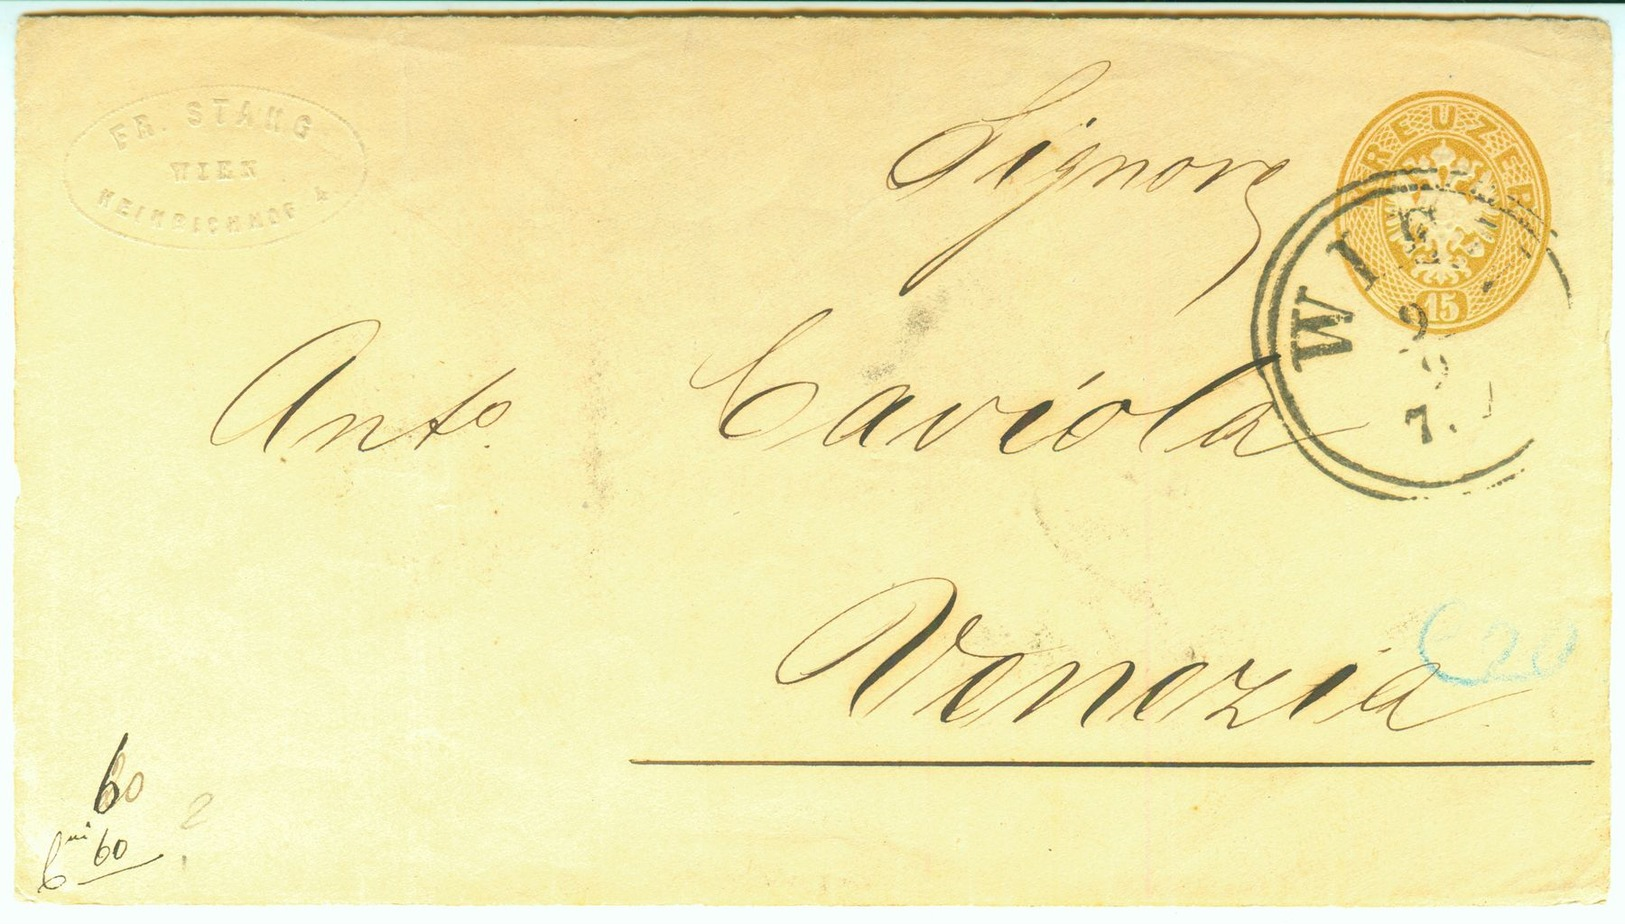 FR. STANG
WIEN
HEINRICHHOF 4
KREUZER
15
WIEN
9
9
7.
Signore
Anto. Caviola
Venezia
20
60
60
2